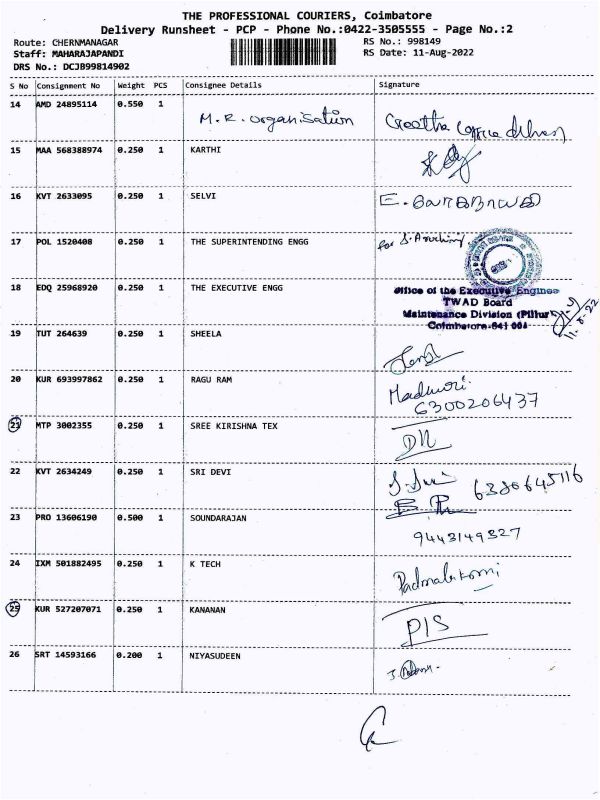 THE PROFESSIONAL COURIERS, Coimbatore
Delivery Runsheet - PCP - Phone No.:0422-3505555 - Page No.:2
Route: CHERNMANAGAR RS No.: 998149
Staff: MAHARAJAPANDI RS Date: 11-Aug-2022
DRS No.: DCJB99814902
S No Consignment No Weight PCS Consignee Details Signature
14 AMD 24895114 0.550 1 M.R. organisation Geetha
15 MAA 568388974 0.250 1 KARTHI
16 KVT 2633095 0.250 1 SELVI
17 POL 1520408 0.250 1 THE SUPERINTENDING ENGG for
18 EDQ 25968920 0.250 1 THE EXECUTIVE ENGG Office of the Executive Engineer
TWAD Board
Maintenance Division (Pillur
Coimbatore-641 001
11.8.22
19 TUT 264639 0.250 1 SHEELA
20 KUR 693997862 0.250 1 RAGU RAM Madhuri
6300206437
21 MTP 3002355 0.250 1 SREE KIRISHNA TEX
22 KVT 2634249 0.250 1 SRI DEVI 6380645116
23 PRO 13606190 0.500 1 SOUNDARAJAN
9443149327
24 IXM 501882495 0.250 1 K TECH
25 KUR 527207071 0.250 1 KANANAN P/S
26 SRT 14593166 0.200 1 NIYASUDEEN